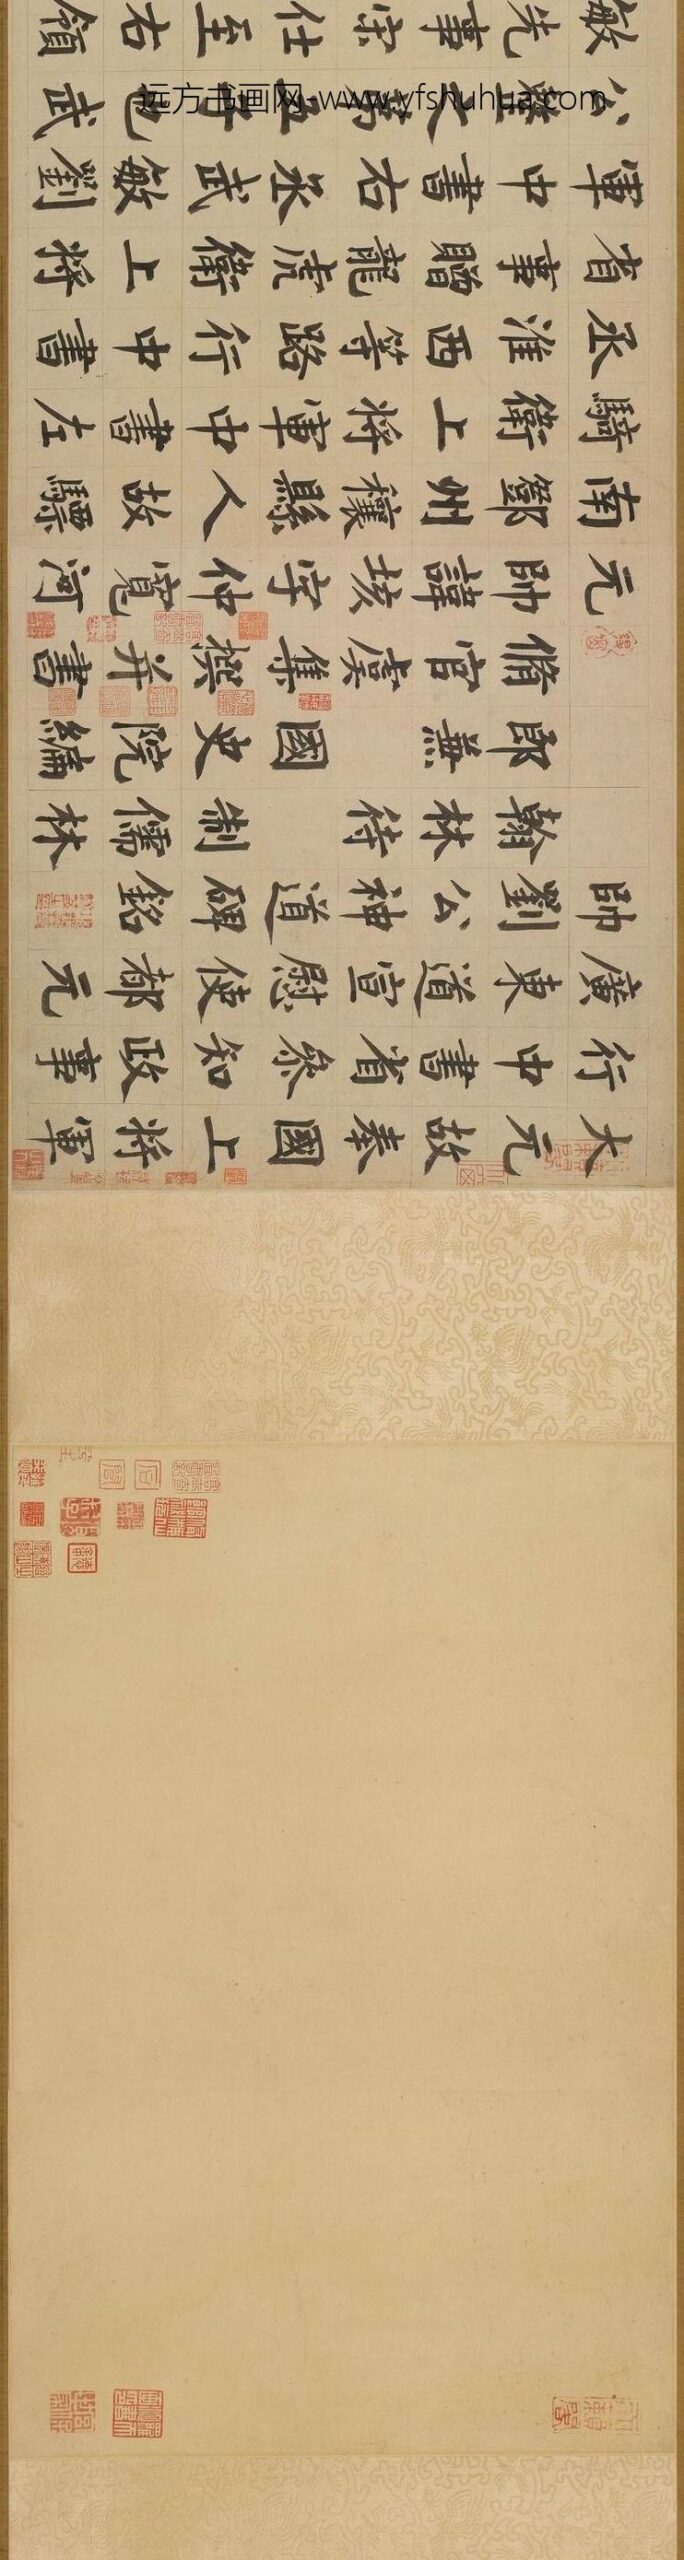 大元故奉國上將軍
行中書省參知政事
廣東道宣慰使都元
帥劉公神道碑銘
翰林待制儒林
郎兼國史院編
脩官虞集撰并書
元帥諱垓字仲寬河
南鄧州穰縣人故驃
騎衛上將軍中書左
丞淮西等路行中書
省事贈龍虎衛上將
軍中書右丞武敏劉
公整之第五子也武
敏先事宋仕至右領
远方书画网-www.yfshuhua.com